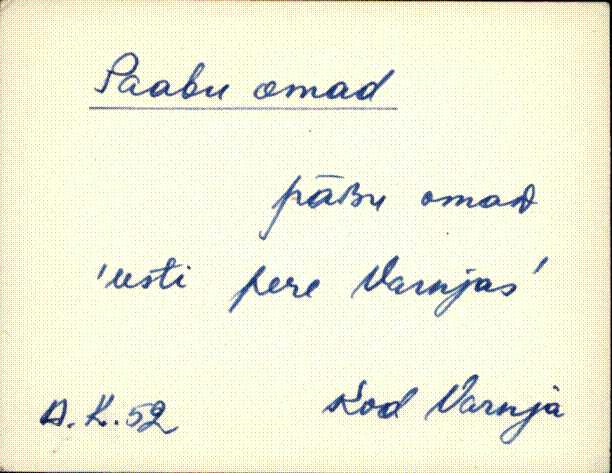 Paabu omad
pāʙu omaᴅ
'eesti pere Varnjas'
A.K.52 Kod Varnja